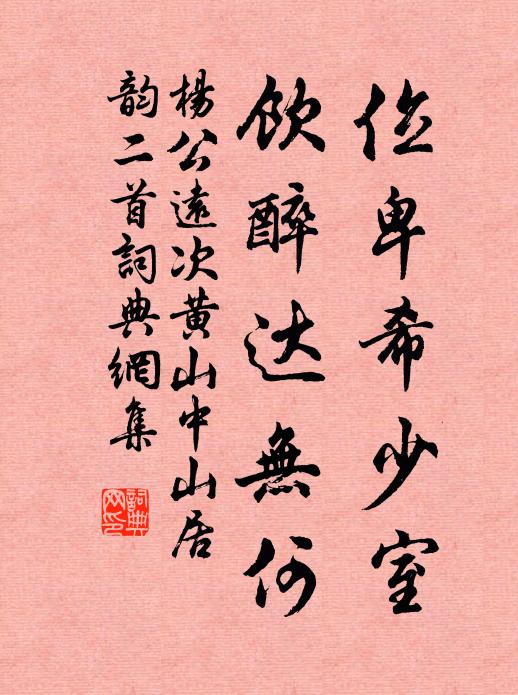 俭卑希少室
饮醉达無何
楊公遠次黄山中山居
韵二首詞典網集
詞典
网印